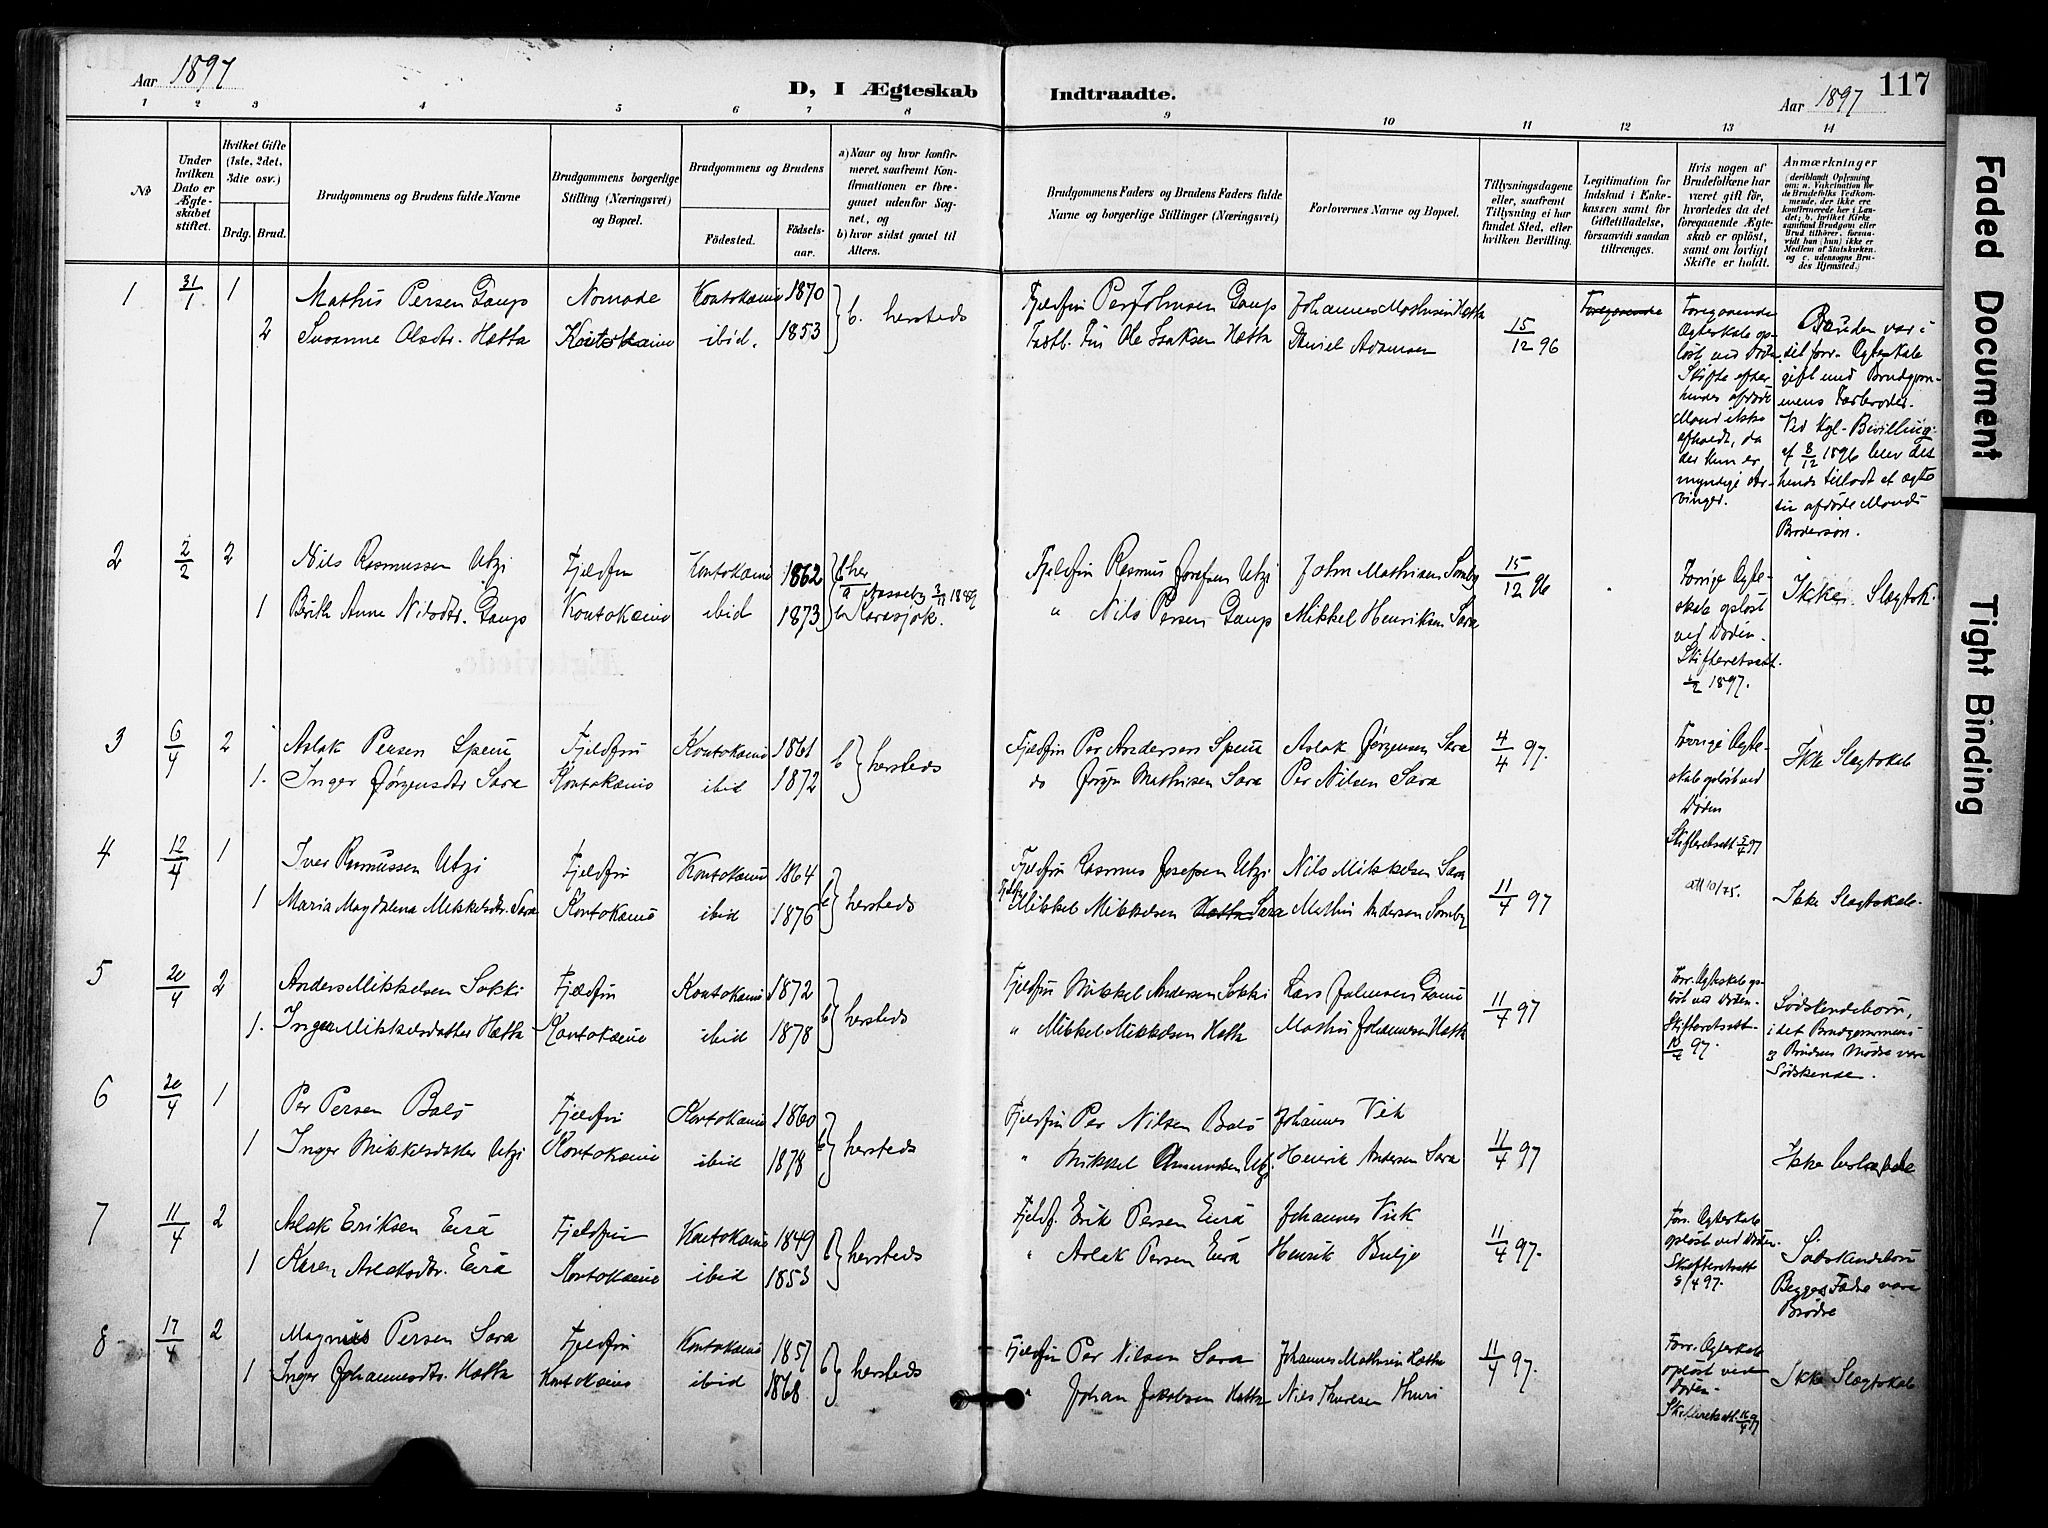 Aar 1897
D, I Ægteskab Indtraadte.
Aar 1897
117
1 2 3 4 5 6 7 8 9 10 11 12 13 14
No
Under hvilken Dato er Ægteskabet stiftet.
Hvilket Gifte (1ste, 2det, 3die osv.)
Brdg. Brud.
Brudgommens og Brudens fulde Navne
Brudgommens borgerlige Stilling (Næringsvei) og Bopæl.
Brudgommens og Brudens
Födested.
Födsels-aar.
a) Naar og hvor konfirmeret, saafremt Konfirmationen er foregaaet udenfor Sognet, og
b) hvor sidst gaaet til Alters.
Brudgommens Faders og Brudens Faders fulde Navne og borgerlige Stillinger (Næringsvei)
Forlovernes Navne og Bopæl.
Tillysningsdagene eller, saafremt Tillysning ei har fundet Sted, efter hvilken Bevilling.
Legitimation for Indskud i Enkekassen samt for Giftetilladelse, forsaavidt saadan tiltrænges.
Hvis nogen af Brudefolkene har været gift för, hvorledes da det foregaaende Ægteskab er oplöst, samt om lovligt Skifte er holdt.
Anmærkninger
(deriblandt Oplysning om: a. Vakcination for de Brudefolks Vedkommende, der ikke ere konfirmerede her i Landet; b. hvilket Kirkesamfund Brudgom eller Brud tilhörer, forsaavidt han (hun) ikke er Medlem af Statskirken. og c. udensogns Brudes Hjemsted.)
1 31/1 1 Mathis Persen Gaup Nomade Koutokeino 1870 b. hersteds Fjeldfin Per Johnsen Gaup Johannes Mathisen Hætta 15/12 96
2 Susanne Olsdtr. Hætta Koutokæino ibid. 1853 Fastb. Fin Ole Isaksen Hætta Daniel Adamsen
Foregaaende Ægteskab opløst ved Døden. Skifte efter hendes afdøde Mand ikke afholdt, da der kun er myndige Arvinger.
Bruden var i det forr. Ægteskab gift med Brudgommens Farbroder. Ved Kgl. Bevilling af 8/12 1896 blev det hende tilladt at ægte sin afdøde Mands Brodersøn.
2 2/2 2 Nils Rasmussen Utzi Fjeldfin Koutokæino 1862 b her Fjeldfin Rasmus Josefsen Utzi John Mathisen Somby 15/12 96
1 Berith Anne Nilsdtr. Gaup Koutokæino ibid 1873 b Karasjok. " Nils Persen Gaup Mikkel Henriksen Sara
Forrige Ægteskab opløst ved Døden. Skifteretsatt. 1/2 1897.
Ikke Slægtsk.
3 6/4 2 Aslak Persen Spein Fjeldfin Koutokæino 1861 b hersteds Fjeldfin Per Andersen Spein Aslak Jørgensen Sara 4/4 97.
1. Inger Jørgensdtr Sara Koutokæino ibid 1872 do Jørgen Mathisen Sara Per Nilsen Sara
Forrige Ægteskab opløst ved Døden Skifteretsatt 5/4 97
Ikke Slægtskab
4 12/4 1 Iver Rasmussen Utzi Fjeldfin Koutokæino 1864 b hersteds Fjeldfin Rasmus Josefsen Utzi Nils Mikkelsen Sara 11/4 97
1 Maria Magdalena Mikkelsdtr. Sara Koutokæino ibid 1876 Fjeldfin Mikkel Mikkelsen Hætta Sara Mathis Andersen Somby
Ikke Slægtskab.
5 20/4 2 Anders Mikkelsen Sokki Fjeldfin Koutokæino 1872 b hersteds Fjeldfin Mikkel Andersen Sokki Lars Johnsen Gaino 11/4 97
1. Inger Mikkelsdatter Hætta Koutokæino ibid 1878 " Mikkel Mikkelsen Hætta Mathis Johannesen Hætta
Forr. Ægteskab opløst ved Døden. Skifteretsatt. 97.
Sødskendebørn, i det Brudgommens og Brudens Mødre vare Sødskende.
6 20/4 1 Per Persen Bals Fjeldfin Koutokæino 1860 b hersteds Fjeldfin Per Nilsen Bals Johannes Vik 11/4 97
1 Inger Mikkelsdatter Utzi Koutokæino ibid 1878 " Mikkel Amundsen Utzi. Henrik Andersen Sara
Ikke beslægtede
7 11/4 2 Aslak Eriksen Eira Fjeldfin Koutokæino 1849 b hersteds Fjeldf. Erik Persen Eira Johannes Vik 11/4 97.
1 Karen Aslaksdtr. Eira Koutokæino ibid 1853 " Aslak Persen Eira Henrik Buljo
Forr. Ægteskab opløst ved Døden. Skifteretsatt 8/4 97.
Sødskendebørn Begges Fædre vare Brødre
8 17/4 2 Magnus Persen Sara Fjeldfin Koutokæino 1857 b hersteds Fjeldfin Per Nilsen Sara Johannes Mathisen Hætta 11/4 97.
1 Inger Johannesdtr. Hætta Koutokæino ibid 1868 " Johan Jakobsen Hætta Nils Thuresen Thuri
Forr. Ægteskab opløst ved Døden. Skifteretsatt. 97
Ikke Slægtskab
Faded Document
Tight Binding